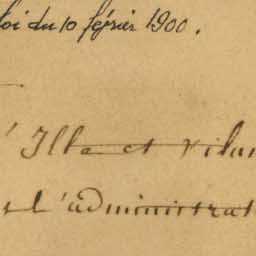 loi du 10 février 1900.
d'Ille et Vilai
et l'administrat